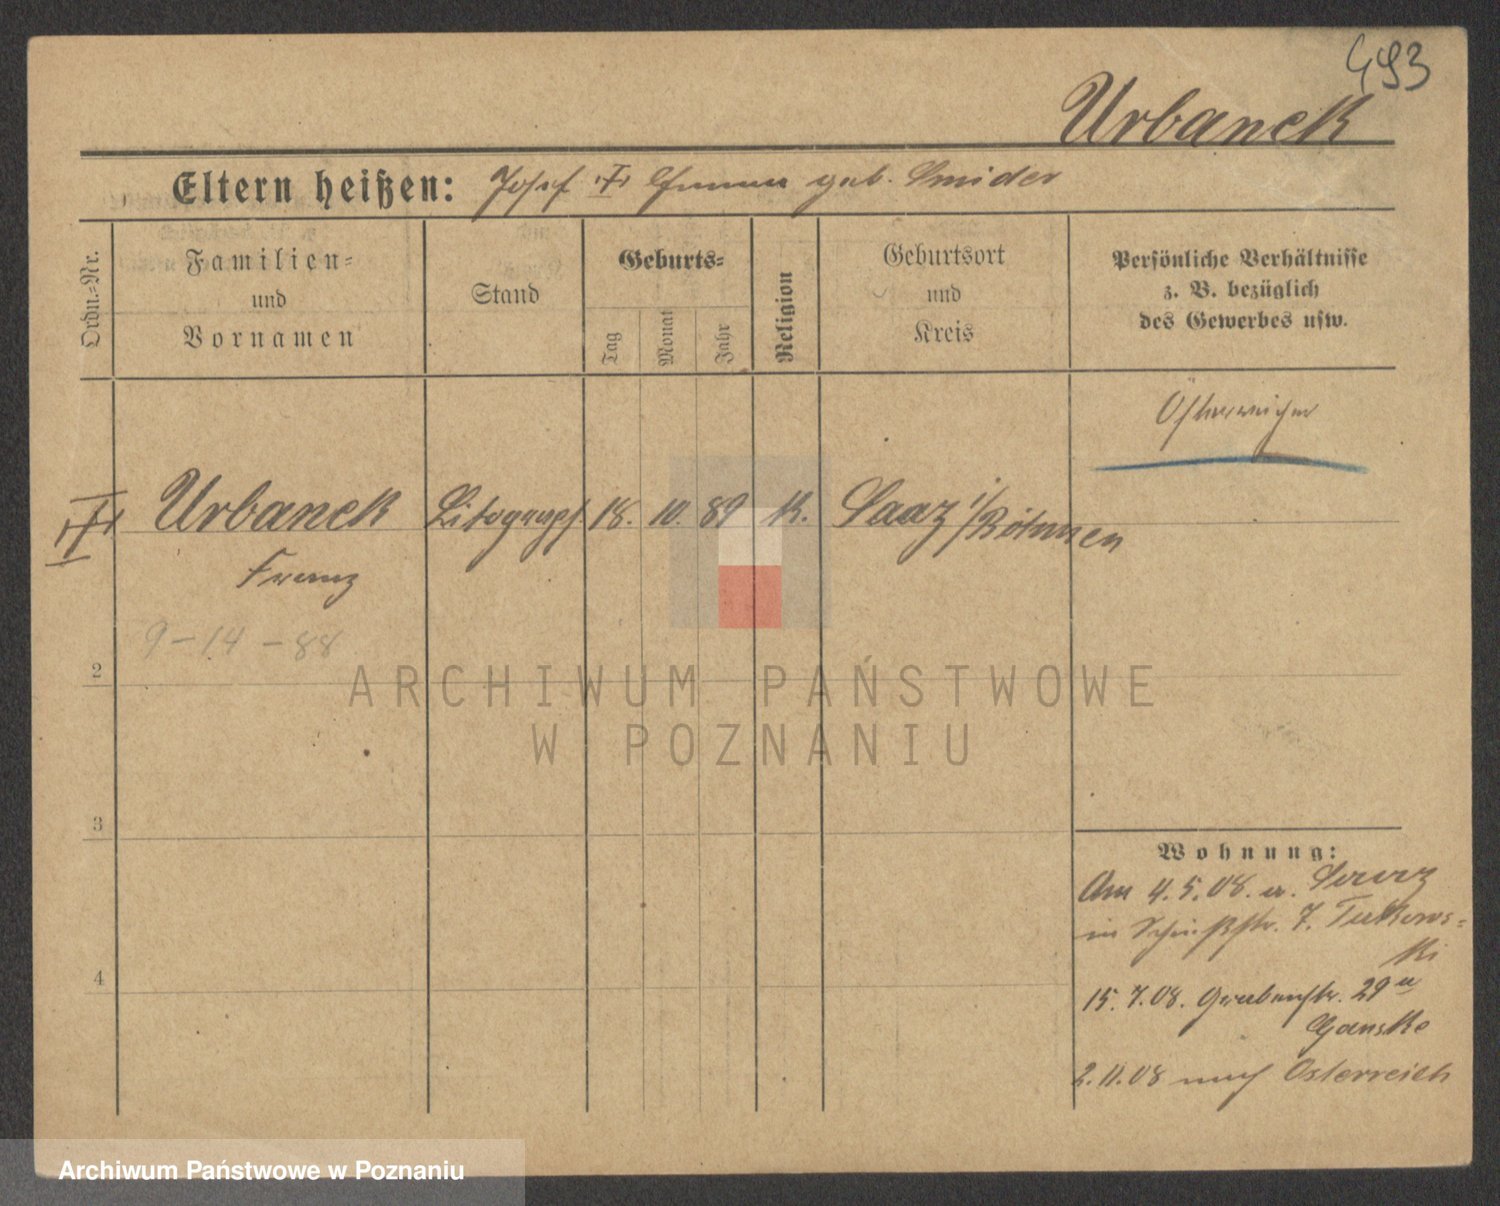 493
Urbanek
Eltern heißen: Josef Emma geb. Smider
Ordn.-Nr.
Familien-
und
Vornamen
Stand
Geburts-
Tag
Monat
Jahr
Religion
Geburtsort
und
Kreis
Persönliche Verhältnisse
z. B. bezüglich
des Gewerbes usw.
Österreicher
Urbanek Litograpf 18. 10. 89 K. Saaz i/Böhmen
Franz
9-14-88
2
3
4
Wohnung:
Am 4.5.08. a. Saaz
in Schießstr. 7. Tutkows-
ki
15.7.08. Grabenstr. 29
Ganske
2.11.08 nach Österreich
ARCHIWUM PAŃSTWOWE
W POZNANIU
Archiwum Państwowe w Poznaniu